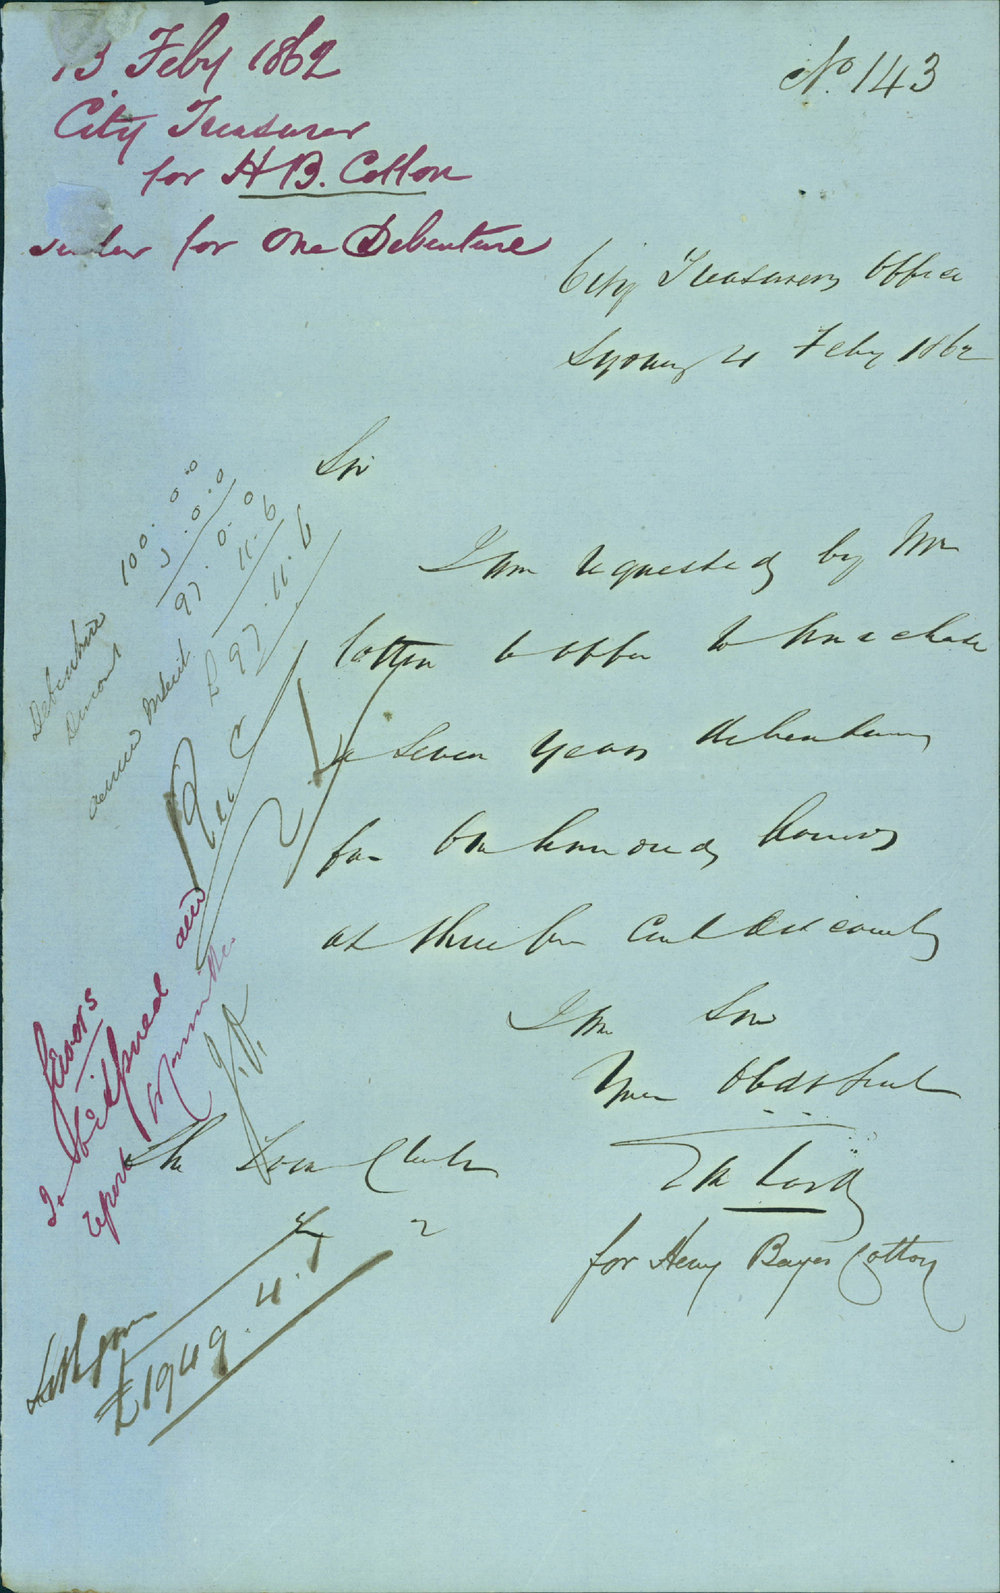 13 Feby 1862
City Treasurer
for H B. Cotton
tender for One Debenture
No. 143
City Treasurers Office
Sydney 4 Feby 1862
Sir
I am requested by Mr
Cotton to offer to purchase
a seven years debenture
for One hundred pounds
at three per Cent discount
I am Sir
Your Obedt Servt
for Henry Bayes Cotton
The Town Clerk
Debenture 100.0.0
Discount 3.0.0
97.0.0
Interest 11.6
£97.11.6
Favors
To
and
report
Committee
£1949.4.